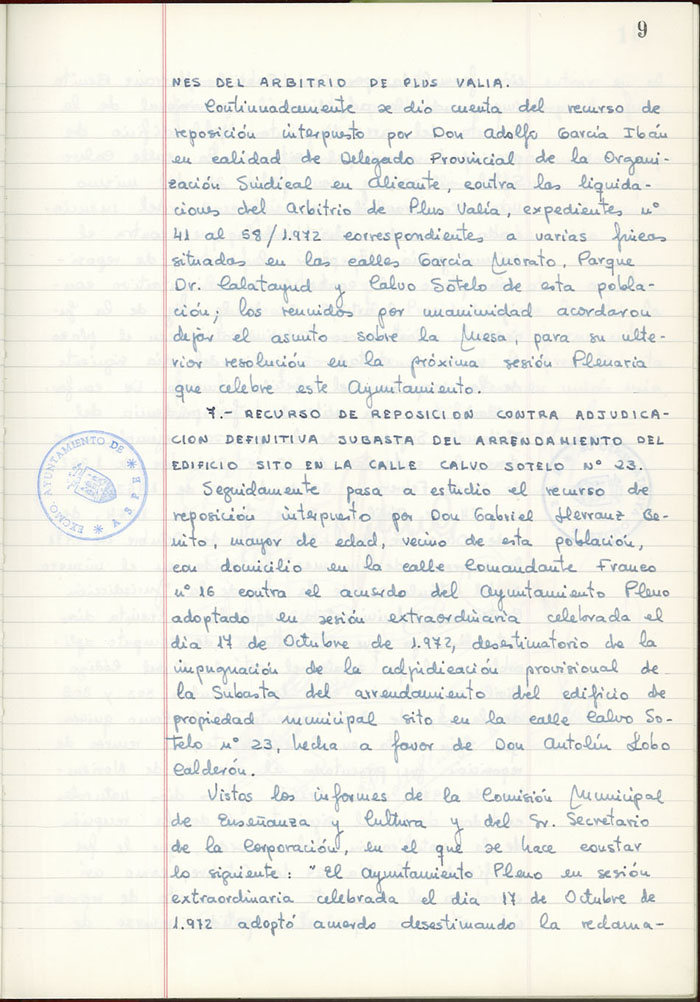 9
NES DEL ARBITRIO DE PLUS VALIA.
Continuadamente se dió cuenta del recurso de
reposición interpuesto por Don Adolfo García Ibán
en calidad de Delegado Provincial de la Organi-
zación Sindical en Alicante, contra las liquida-
ciones del Arbitrio de Plus Valía, expedientes nº
41 al 58/1.972 correspondientes a varias fincas
situadas en las calles García Morato, Parque
Dr. Calatayud y Calvo Sotelo de esta pobla-
ción; los reunidos por unanimidad acordaron
dejar el asunto sobre la Mesa, para su ulte-
rior resolución en la próxima sesión Plenaria
que celebre este Ayuntamiento.
7.- RECURSO DE REPOSICION CONTRA ADJUDICA-
CION DEFINITIVA SUBASTA DEL ARRENDAMIENTO DEL
EDIFICIO SITO EN LA CALLE CALVO SOTELO Nº 23.
EXCMO. AYUNTAMIENTO DE * ASPE *
Seguidamente pasa a estudio el recurso de
reposición interpuesto por Don Gabriel Herranz Be-
nito, mayor de edad, vecino de esta población,
con domicilio en la calle Comandante Franco
nº 16 contra el acuerdo del Ayuntamiento Pleno
adoptado en sesión extraordinaria celebrada el
dia 17 de Octubre de 1.972, desestimatorio de la
impugnación de la adjudicación provisional de
la Subasta del arrendamiento del edificio de
propiedad municipal sito en la calle Calvo So-
telo nº 23, hecha a favor de Don Antolín Lobo
Calderón.
Vistos los informes de la Comisión Municipal
de Enseñanza y Cultura y del Sr. Secretario
de la Corporación, en el que se hace constar
lo siguiente: "El Ayuntamiento Pleno en sesión
extraordinaria celebrada el dia 17 de Octubre de
1.972 adoptó acuerdo desestimando la reclama-